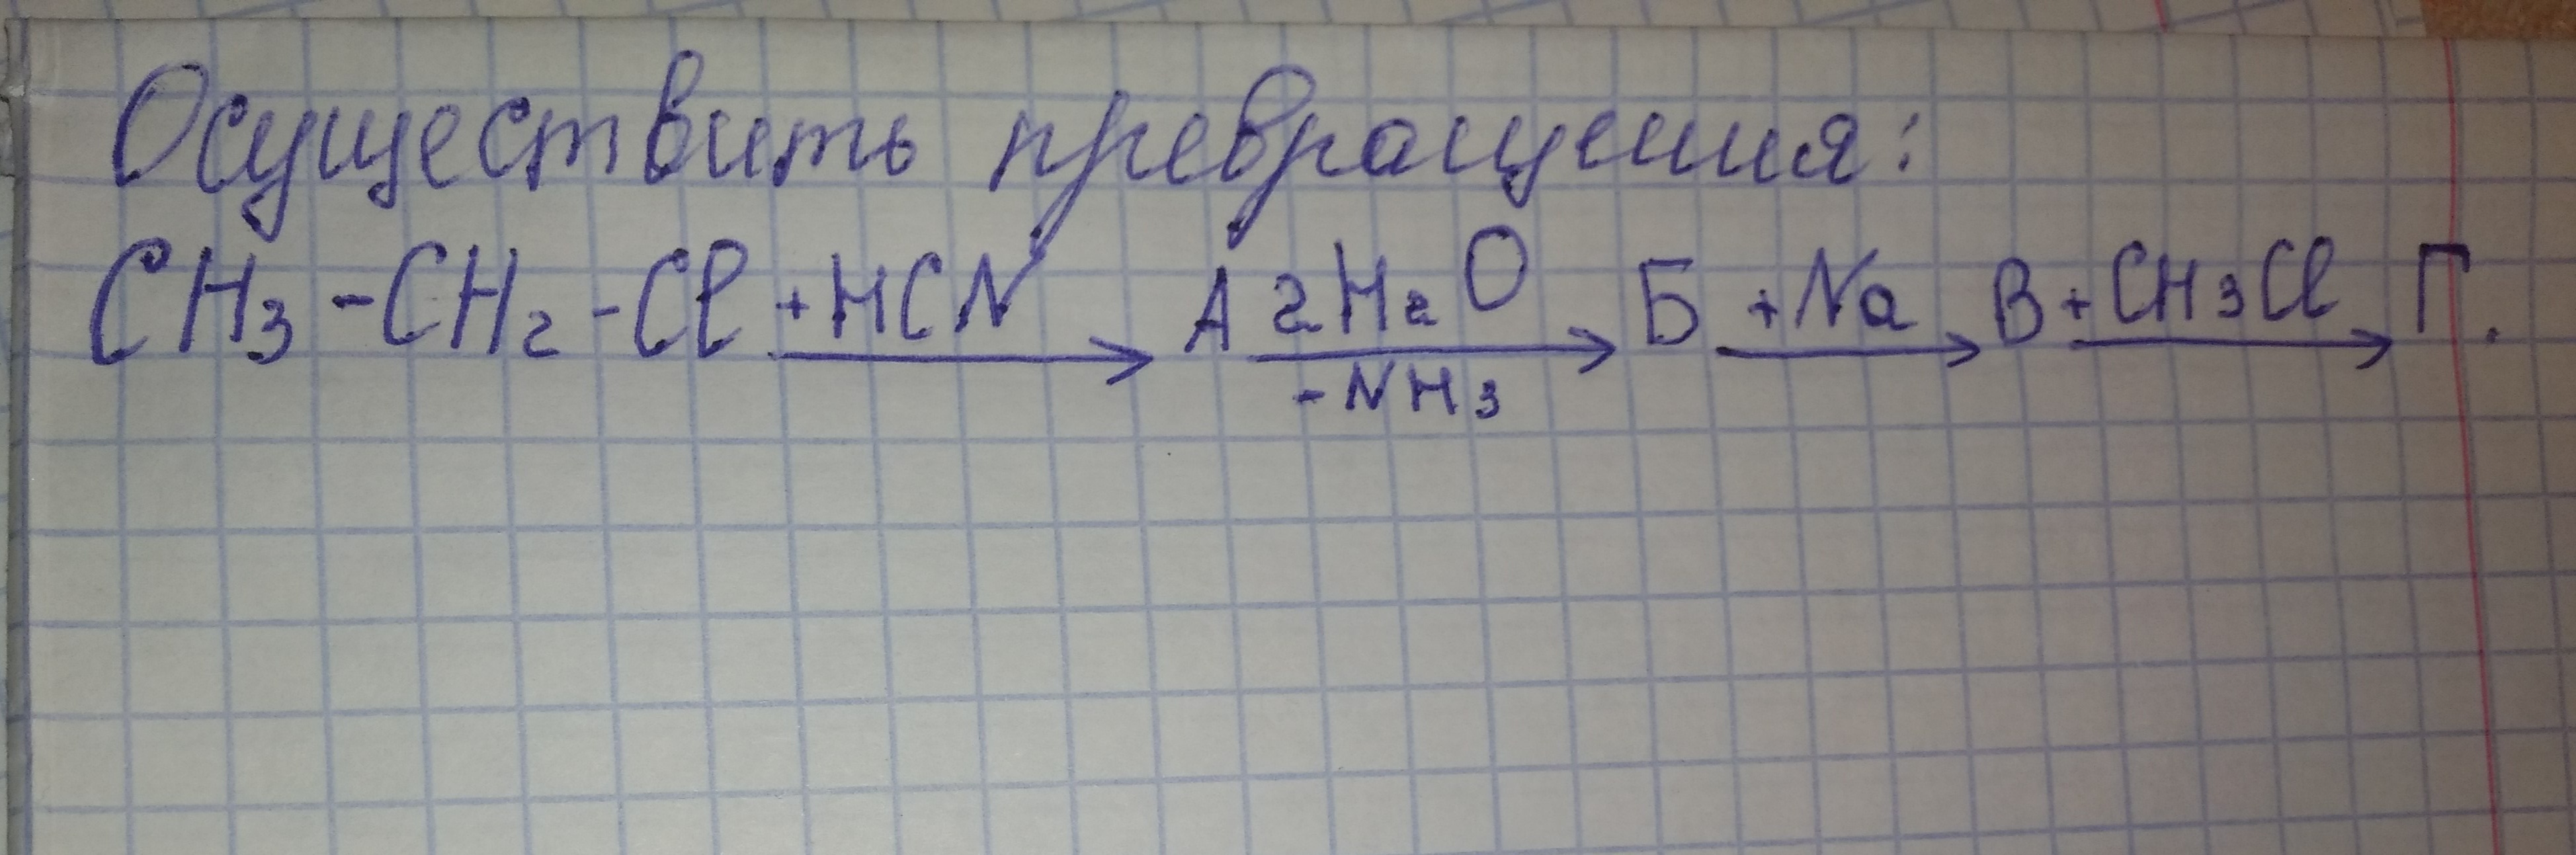 Осуществить превращения:
CH3-CH2-Cl +HCN → A 2H2O → Б +Na → В +CH3Cl → Г.
-NH3